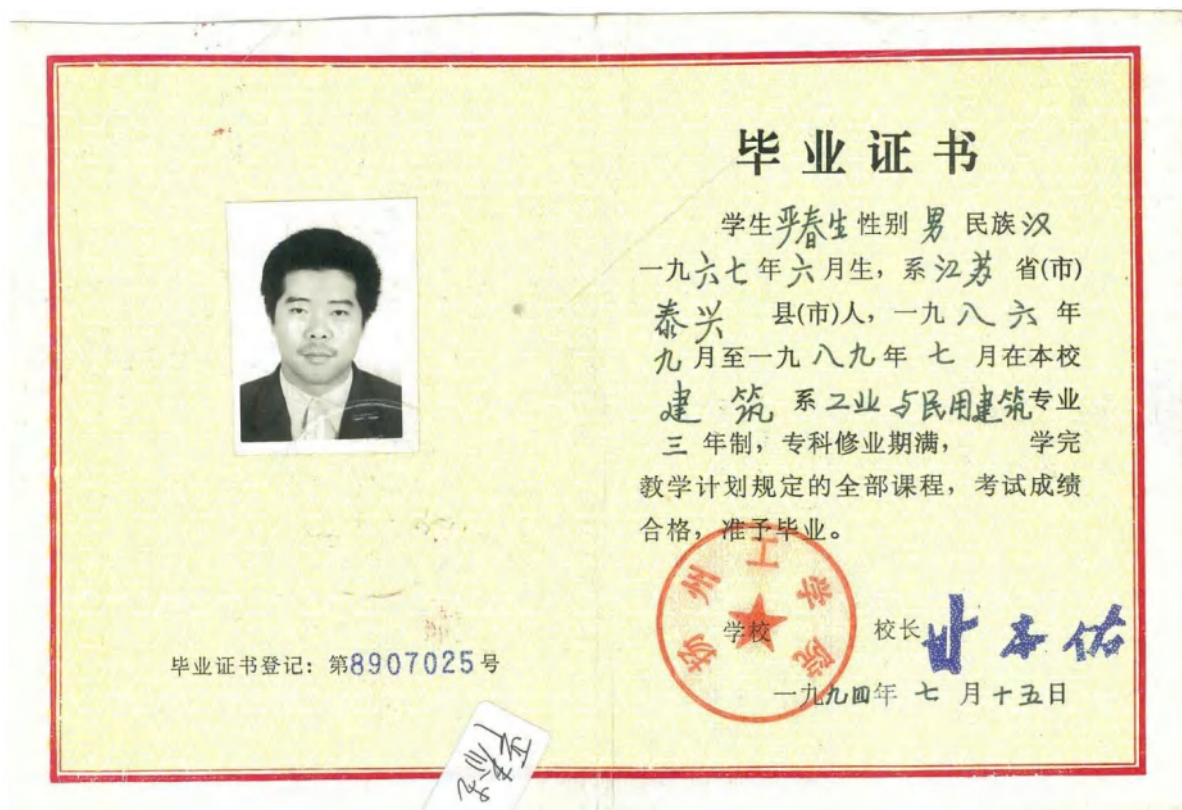 毕业证书
学生严春生性别男民族汉
一九六七年六月生，系江苏省(市)
泰兴县(市)人，一九八六年
九月至一九八九年七月在本校
建筑系工业与民用建筑专业
三年制，专科修业期满，学完
教学计划规定的全部课程，考试成绩
合格，准予毕业。
扬州工学院
学校 校长
一九九四年七月十五日
毕业证书登记：第8907025号